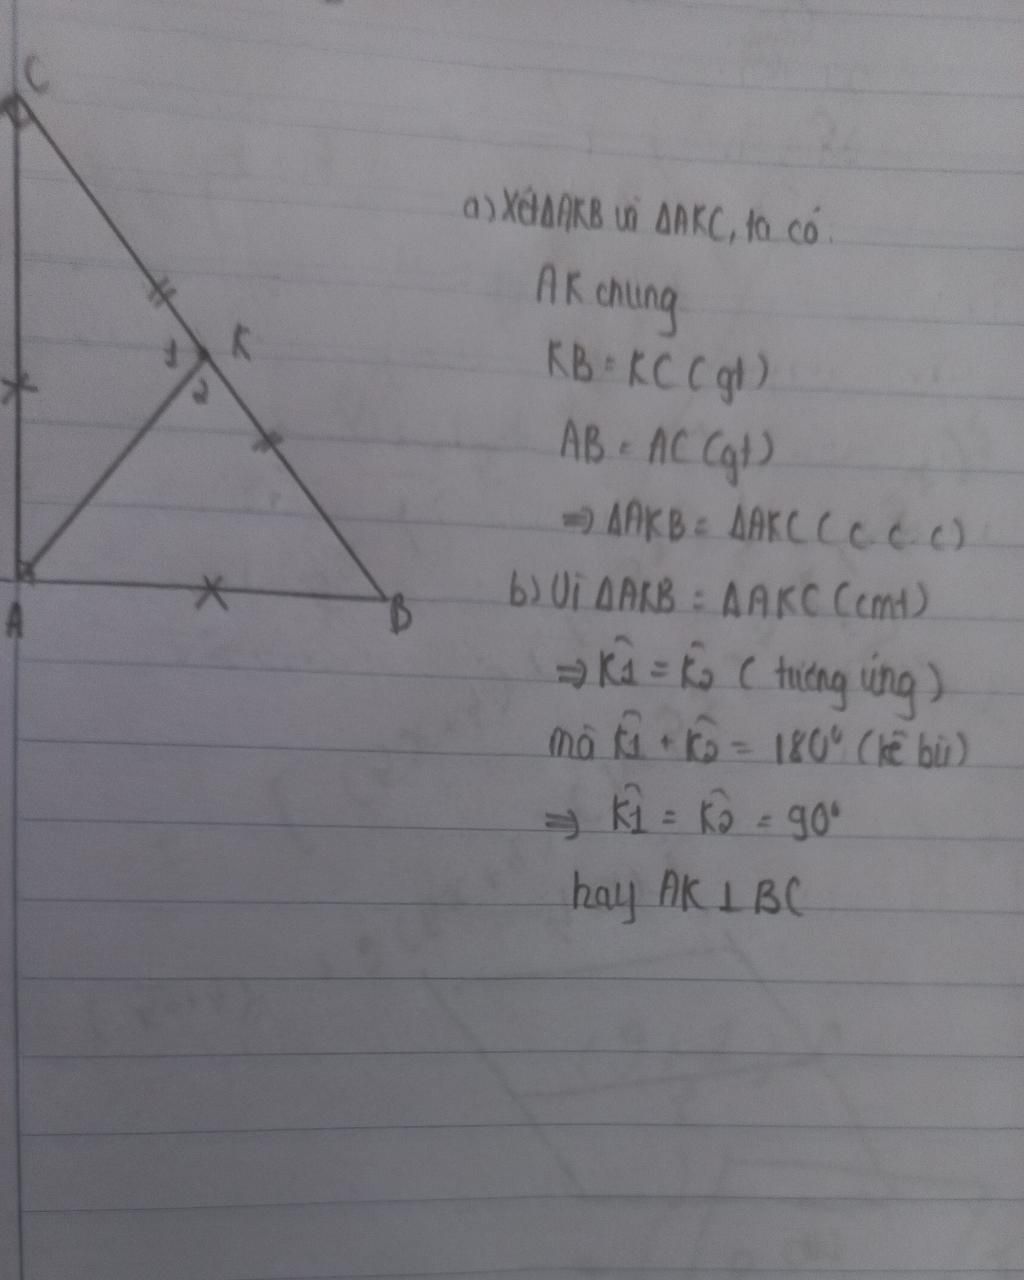 C
K
1
2
A
B
a) Xét ΔAKB và ΔAKC, ta có:
AK chung
KB = KC (gt)
AB = AC (gt)
⇒ ΔAKB = ΔAKC (c.c.c)
b) Vì ΔAKB = ΔAKC (cmt)
⇒ K̂1 = K̂2 (tương ứng)
mà K̂1 + K̂2 = 180° (kề bù)
⇒ K̂1 = K̂2 = 90°
hay AK ⊥ BC